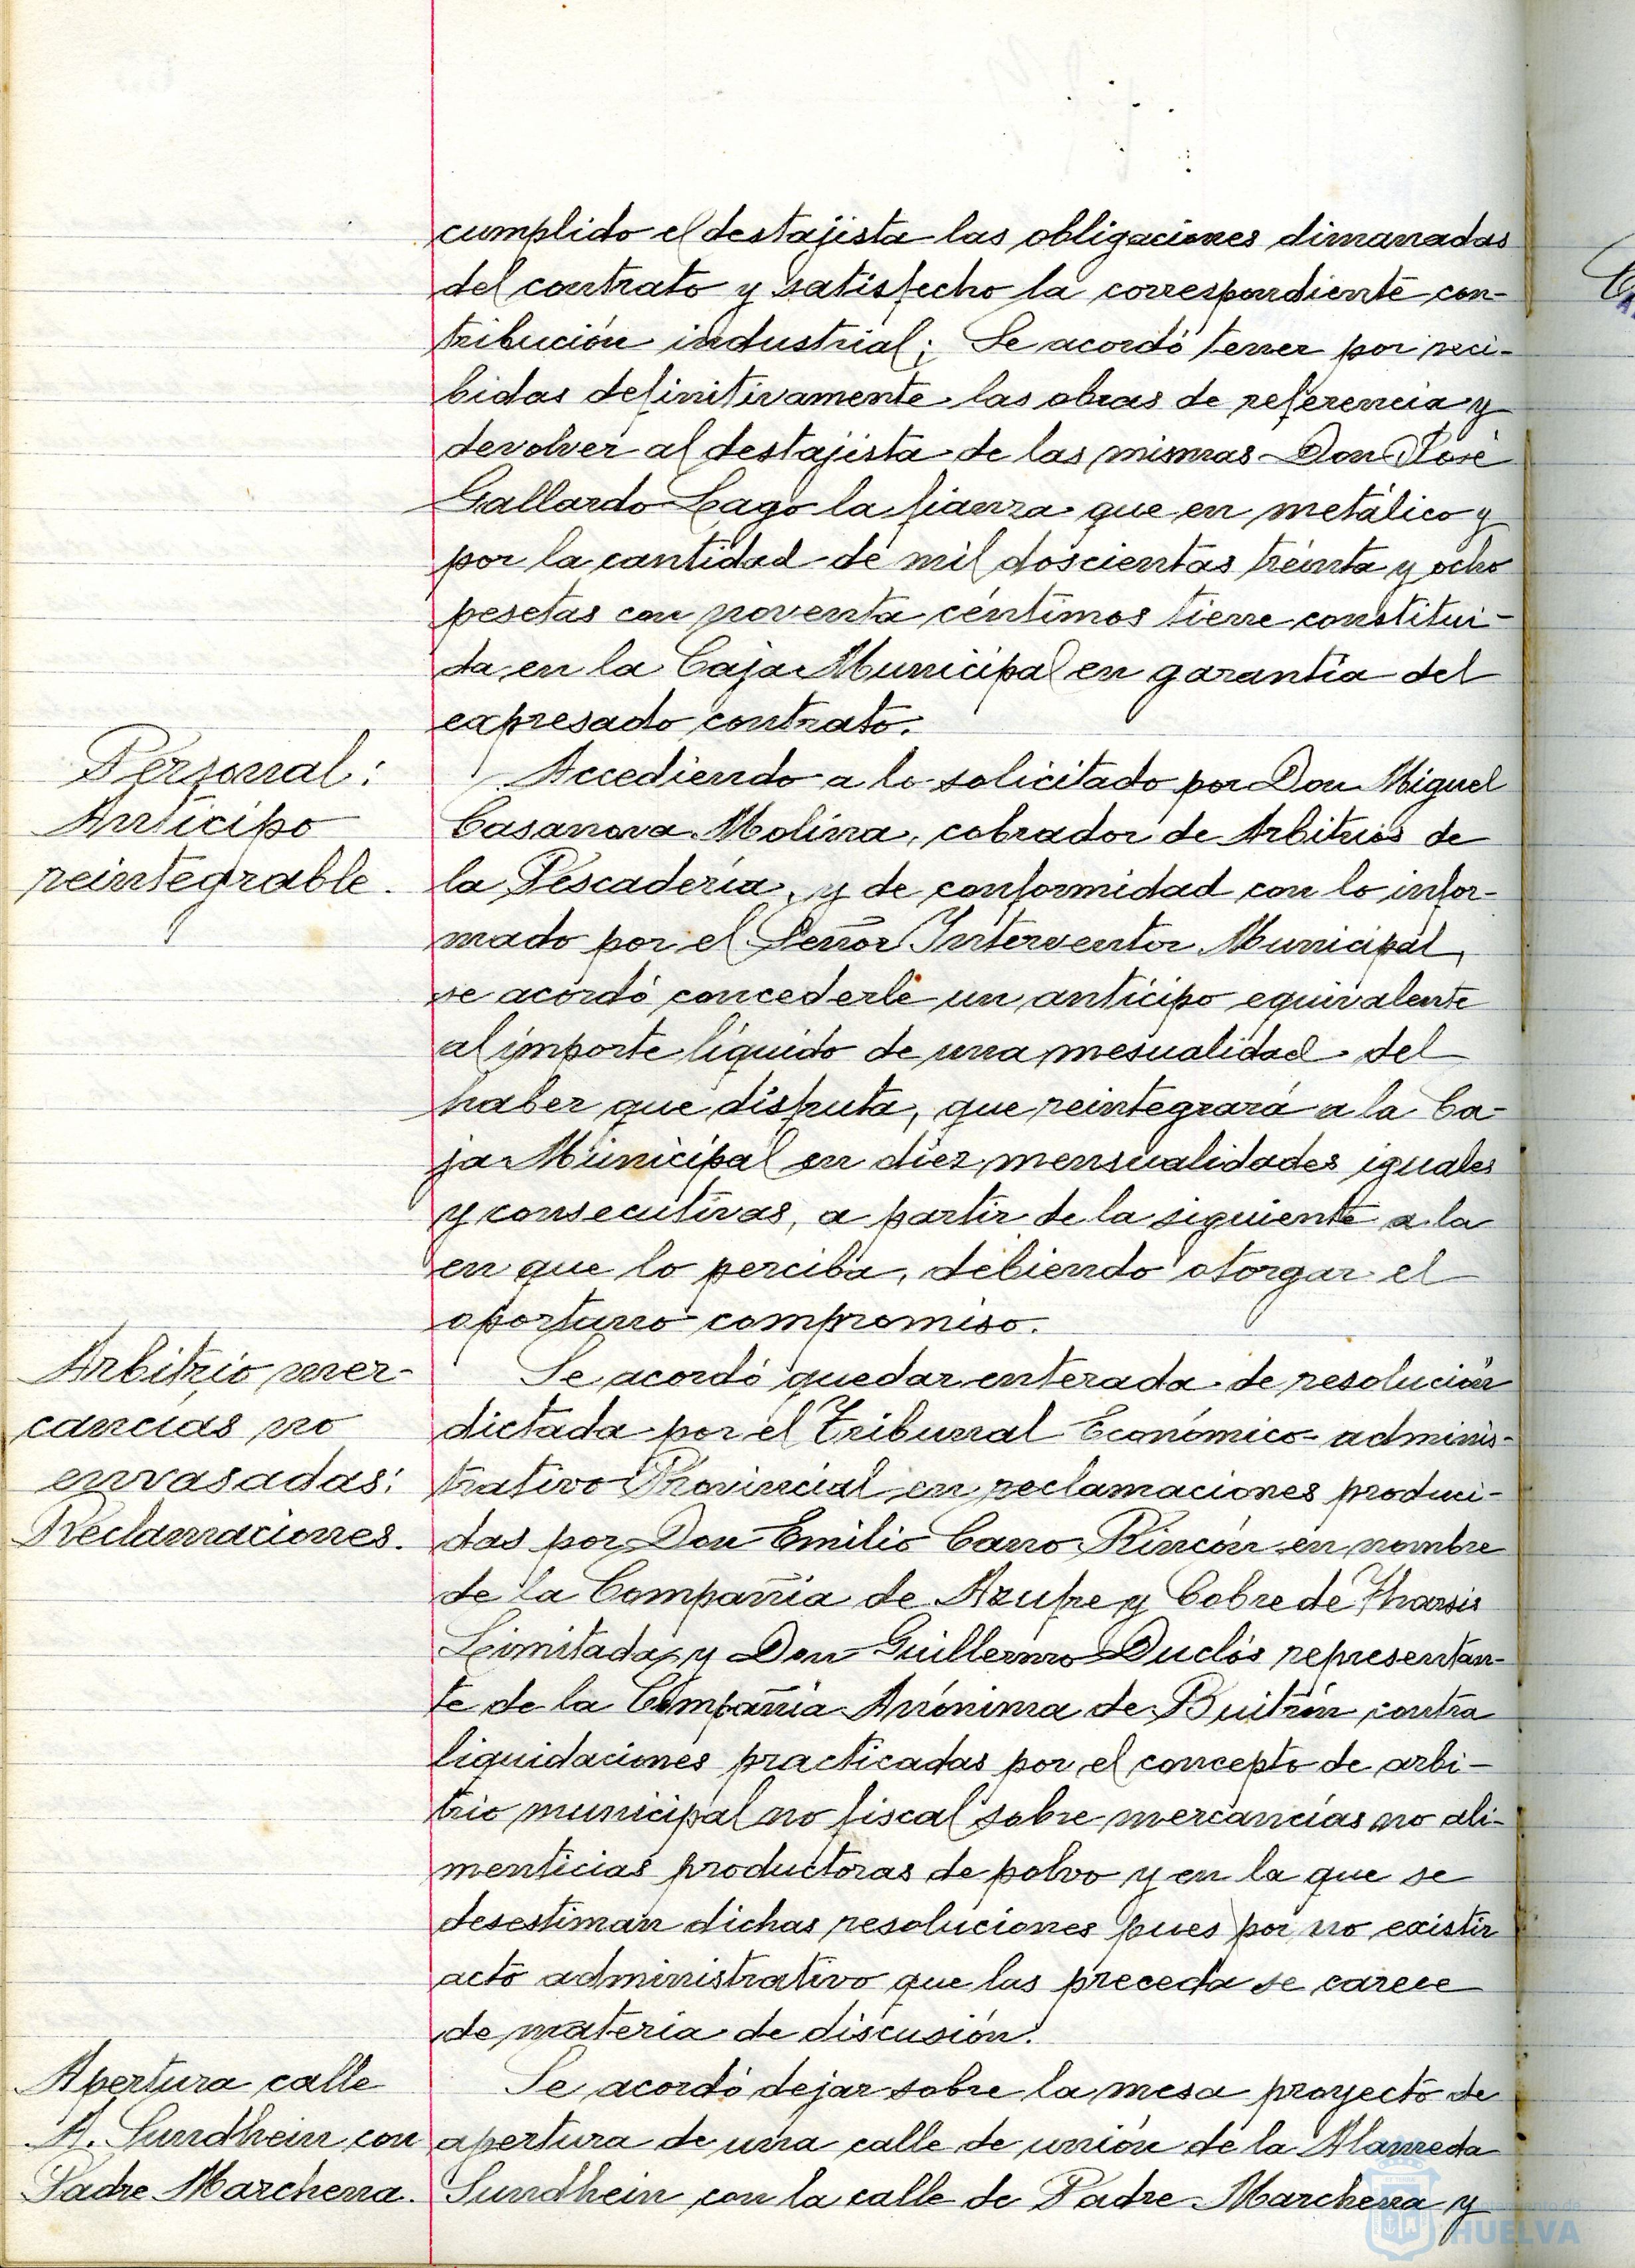 cumplido el destajista las obligaciones dimanadas
del contrato y satisfecho la correspondiente con-
tribución industrial; Se acordó tener por reci-
bidas definitivamente las obras de referencia y
devolver al destajista de las mismas Don José
Gallardo Lago la fianza que en metálico y
por la cantidad de mil doscientas treinta y ocho
pesetas con noventa céntimos tiene constitui-
da en la Caja Municipal en garantía del
expresado contrato.
Personal:
Anticipo
reintegrable.
Accediendo a lo solicitado por Don Miguel
Casanova Molina, cobrador de Arbitrios de
la Pescadería, y de conformidad con lo infor-
mado por el Señor Interventor Municipal,
se acordó concederle un anticipo equivalente
al importe líquido de una mesualidad del
haber que disfruta, que reintegrará a la Ca-
ja Municipal en diez mensualidades iguales
y consecutivas, a partir de la siguiente a la
en que lo perciba, debiendo otorgar el
oportuno compromiso.
Arbitrio mer-
cancías no
envasadas:
Reclamaciones.
Se acordó quedar enterada de resolución
dictada por el Tribunal Económico-adminis-
trativo Provincial en reclamaciones produci-
das por Don Emilio Cano Rincón en nombre
de la Compañía de Azufre y Cobre de Tharsis
Limitada, y Don Guillermo Duclós representan-
te de la Compañía Anónima de Buitrón contra
liquidaciones practicadas por el concepto de arbi-
trio municipal no fiscal sobre mercancías no ali-
menticias productoras de polvo y en la que se
desestiman dichas resoluciones pues por no existir
acto administrativo que las preceda se carece
de materia de discusión.
Apertura calle
A. Sundhein con
Padre Marchena.
Se acordó dejar sobre la mesa proyecto de
apertura de una calle de unión de la Alameda
Sundhein con la calle de Padre Marchena y
HUELVA